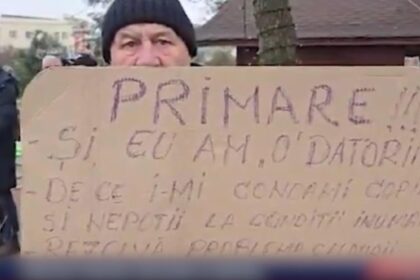 PRIMARE!!!
- ȘI EU AM „O' DATORII
- DE CE I-MI CONDAMI COPI
ȘI NEPOȚII LA CONDIȚII INUMA
- REZOLVĂ PROBLEMA